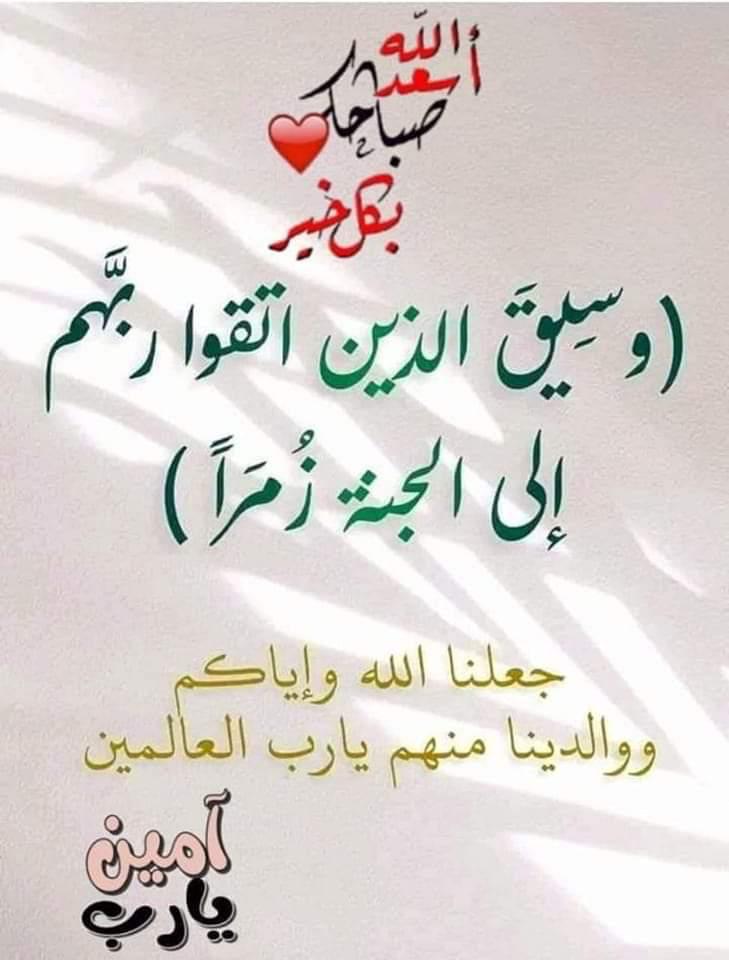 أسعد الله
صباحكم
بكل خير
(وسِيقَ الذين اتقوا ربَّهم
إلى الجنة زُمَراً)
جعلنا الله وإياكم
ووالدينا منهم يارب العالمين
آمين
يارب